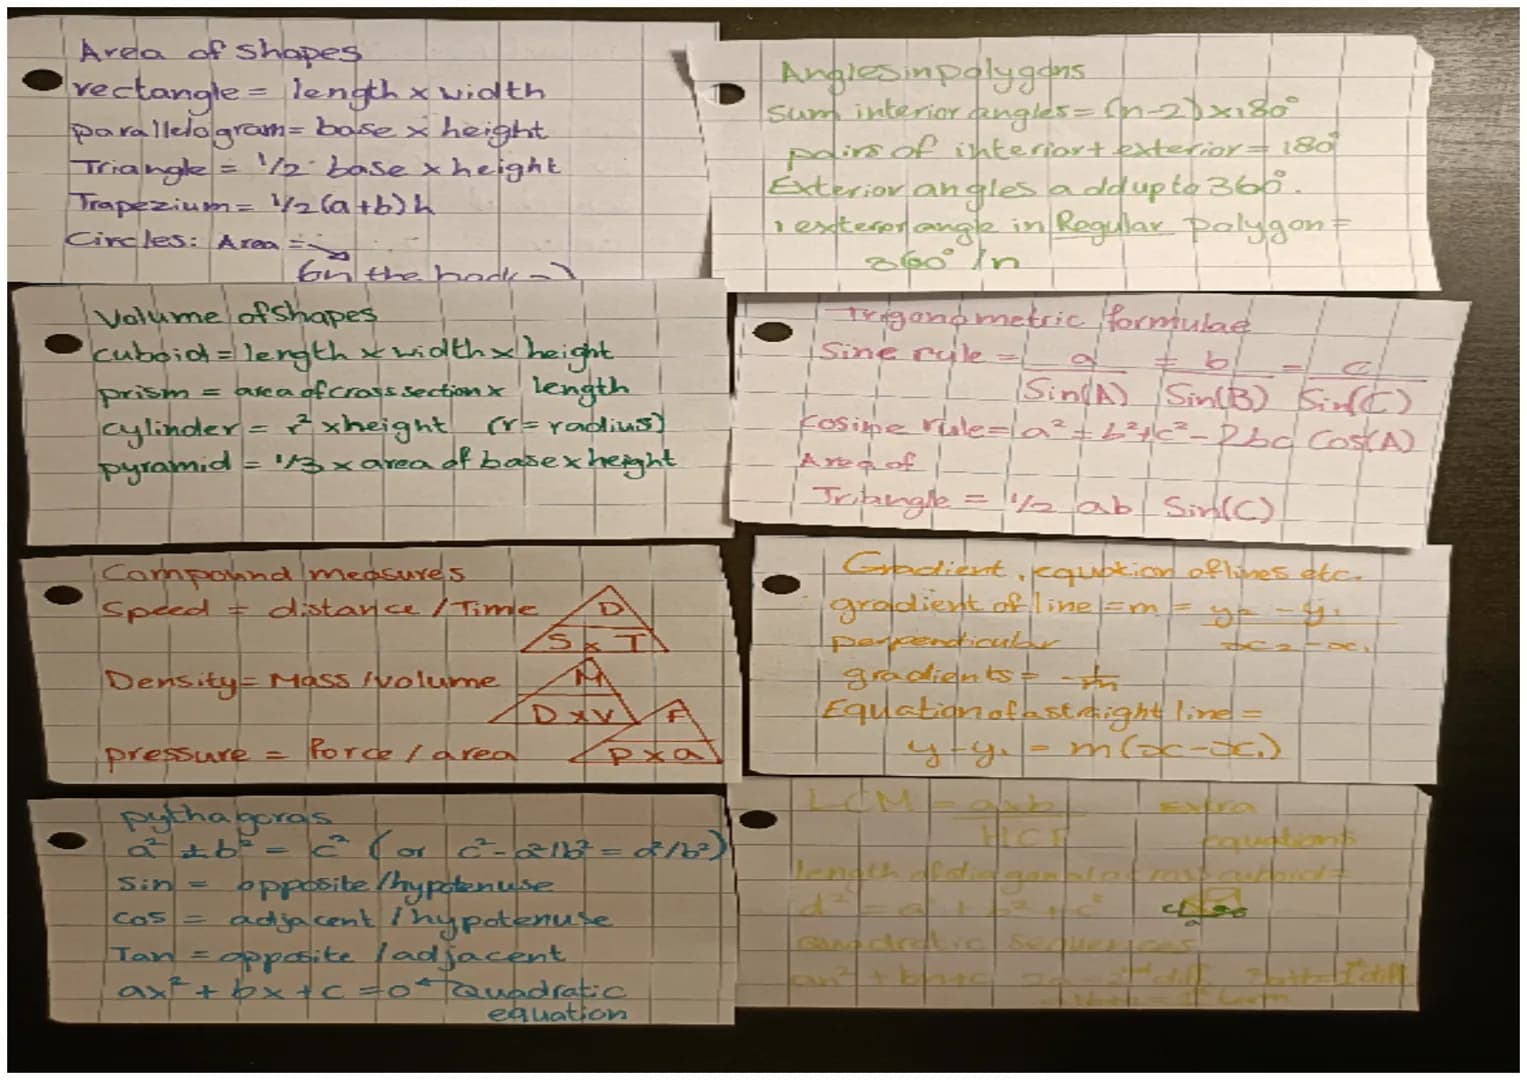 Area of shapes
rectangle = length x width
parallelogram = base x height
Triangle = 1/2 · base x height
Trapezium = 1/2 (a+b) h
Circles: Area =
on the back →
Angles in polygons
Sum interior angles = (n-2) x 180°
pairs of interior + exterior = 180°
Exterior angles add up to 360°.
1 exterior angle in Regular polygon =
360° / n
Volume of Shapes
cuboid = length x width x height
prism = area of cross section x length
cylinder = r² x height (r = radius)
pyramid = 1/3 x area of base x height
Trigonometric formulae
Sine rule = a/Sin(A) = b/Sin(B) = c/Sin(C)
Cosine rule = a² = b² + c² - 2bc Cos(A)
Area of
Triangle = 1/2 ab Sin(C)
Compound measures
Speed = distance / Time
D
S x T
Density = Mass / volume
M
D x V
pressure = Force / area
F
P x a
Gradient, equation of lines etc.
gradient of line = m = y₂ - y₁ / x₂ - x₁
perpendicular
gradients = -1/m
Equation of a straight line =
y - y₁ = m(x - x₁)
pythagoras
a² + b² = c² (or c² - a²/b² = a²/b²)
Sin = opposite / hypotenuse
Cos = adjacent / hypotenuse
Tan = opposite / adjacent
ax² + bx + c = 0 ← Quadratic
equation
LCM = axb / HCF
Extra
equations
length of diagonal across cuboid =
d² = a² + b² + c²
c b
a
Quadratic sequences
an² + bn + c 2a = 2nd diff 3a+b = 1st diff
a+b+c = 1st term